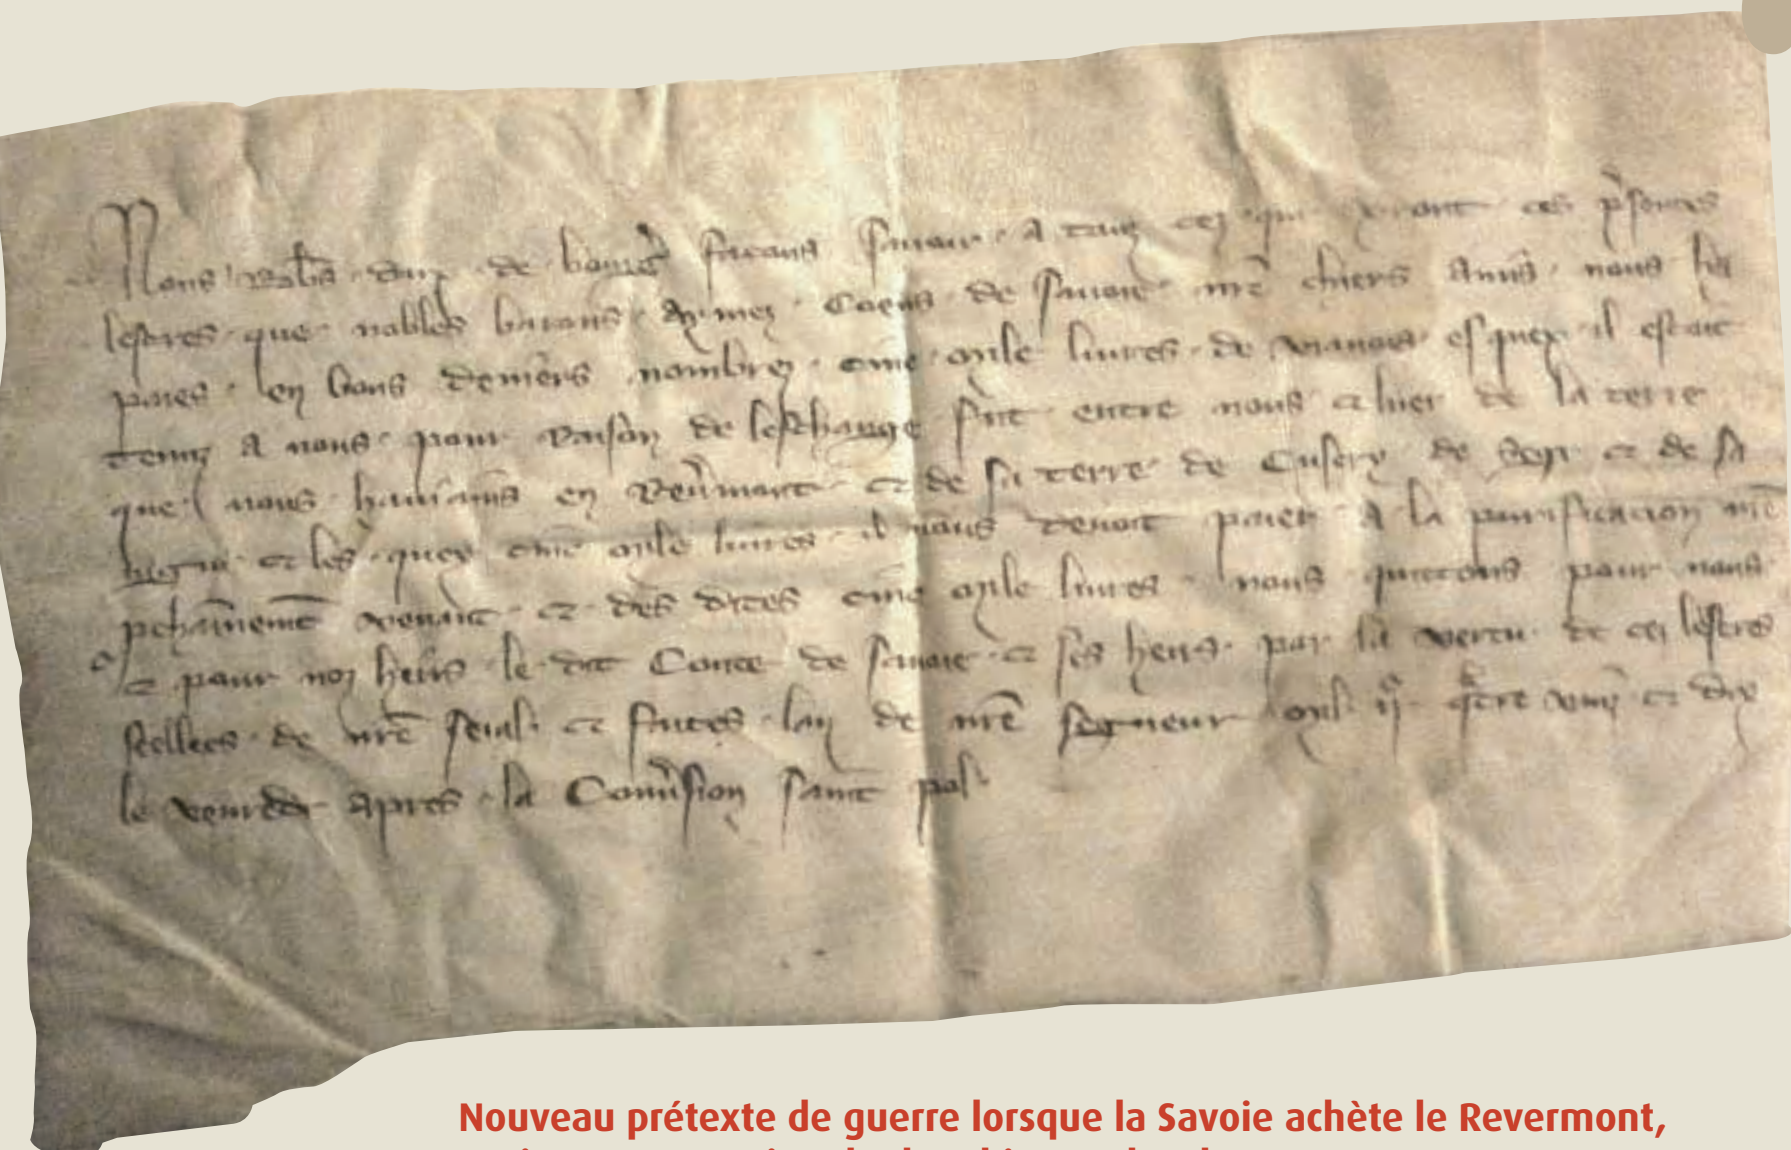 Nous Robers dux de bourg facons savoir a touz cez qui verront ces presentes
lestres que nobles barons Aymez Coens de savoie nre chiers Amis nous ha
paies en bons deniers nombrez cinc mile livres de viannois esquex il estoit
tenuz a nous pour raison de leschange fait entre nous et luy de la terre
que nous haviams en Revermont et de sa terre de Cusery de et de sa
et les quex cinc mile livres il nous devoit paier a la purificacion nre
pchainement venant et des dites cinc mile livres nous quictons pour nous
et pour noz heirs le dit Conte de savoie et ses heirs par la vertu de cez lestres
seellees de nre seial et faites lan de nre segneur mil ij. qtre vinz et dix
le venrdi apres la Conversion saint pol
Nouveau prétexte de guerre lorsque la Savoie achète le Revermont,